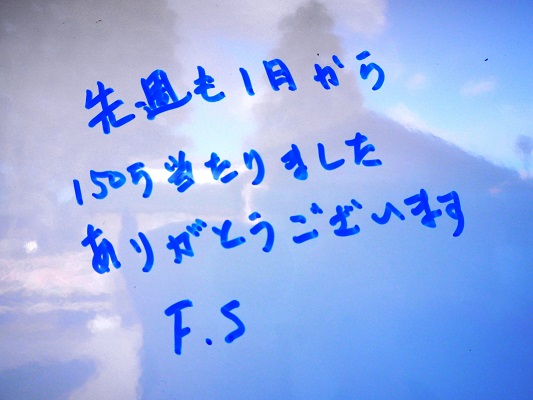 先週も1月から
150万当たりました
ありがとうございます
F.S